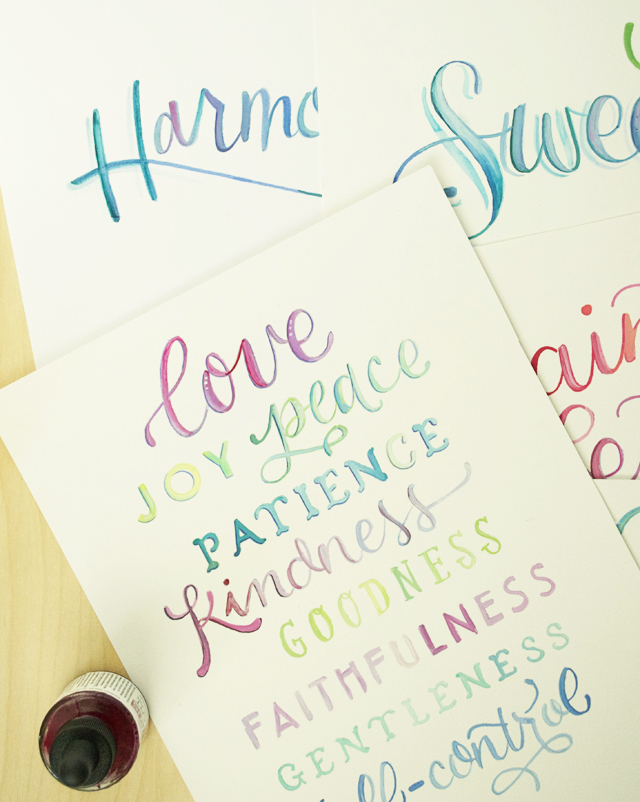 Harmo
Swee
ain
love
JOY peace
PATIENCE
Kindness
GOODNESS
FAITHFULNESS
GENTLENESS
self-control